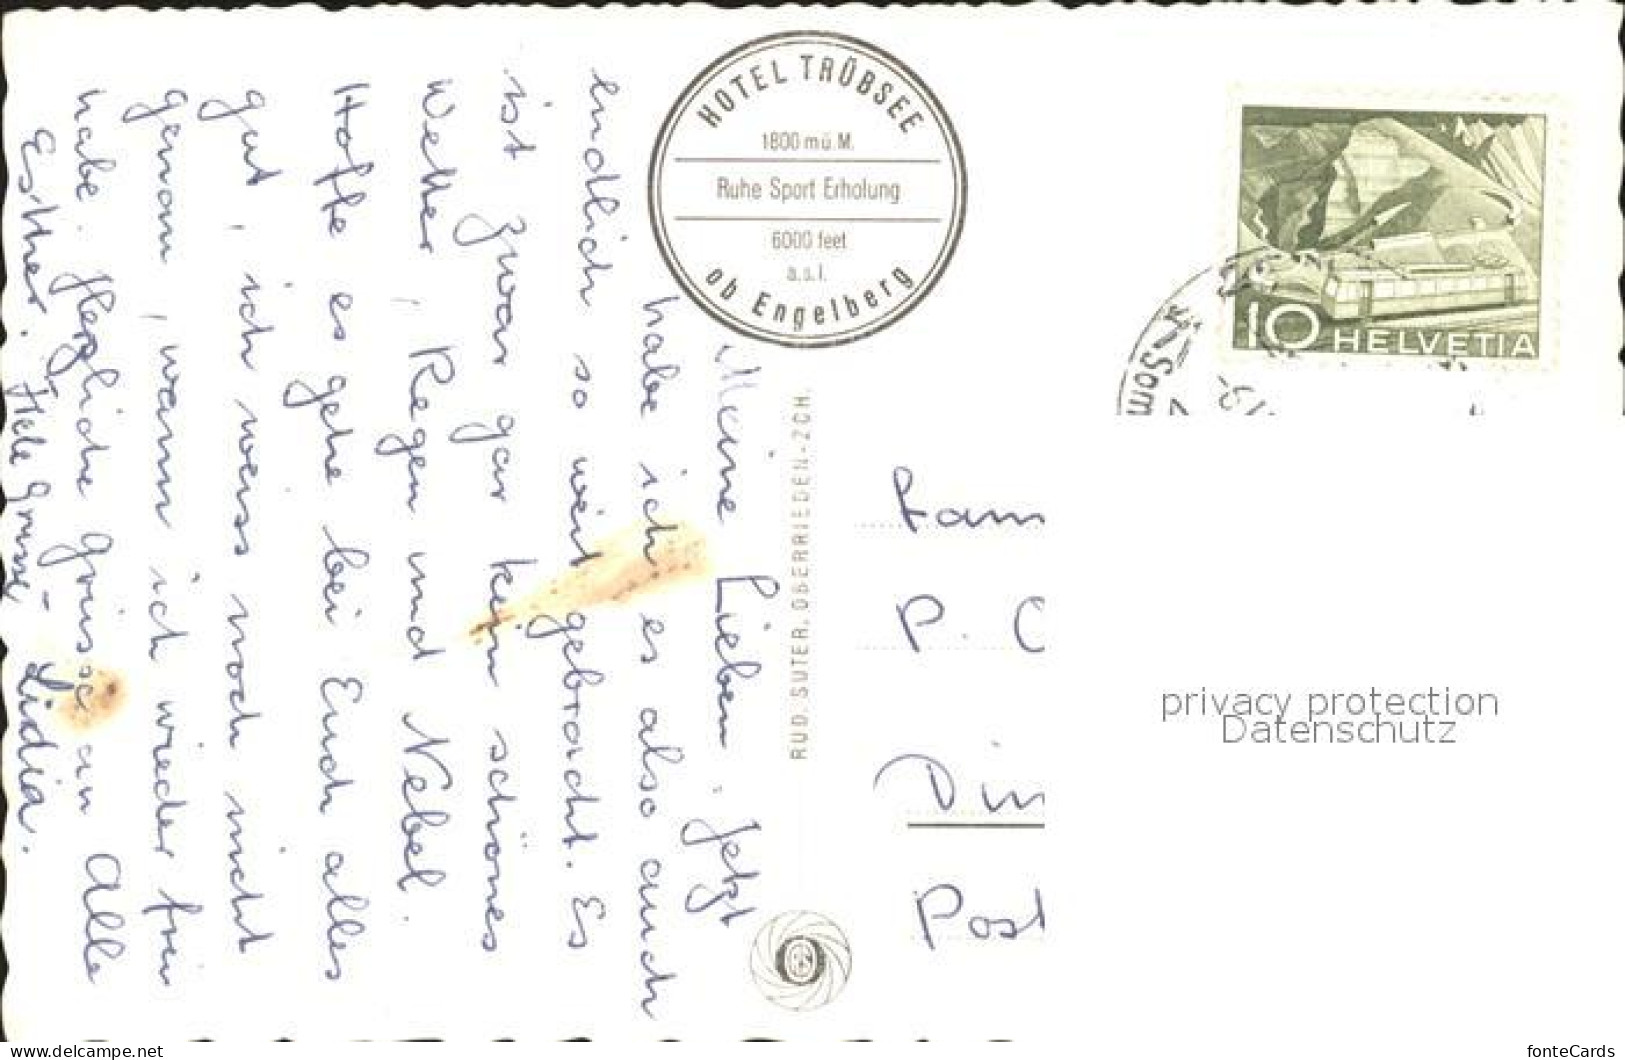 Meine Lieben, jetzt
habe ich es also auch
endlich so weit gebracht. Es
ist zwar gar kein schönes
Wetter, Regen und Nebel.
Hoffe es gehe bei Euch alles
gut, ich weiss noch nicht
genau, wann ich wieder frei
habe. Herzliche Grüsse an Alle
Esther. Viele Grüsse, - Lidia.
HOTEL TRÜBSEE
1800 mü.M.
Ruhe Sport Erholung
6000 feet
a.s.l.
ob Engelberg
RUD. SUTER, OBERRIEDEN-ZCH.
10 HELVETIA
Som
Fam
P. C
Din
Post
privacy protection
Datenschutz
www.delcampe.net
fonteCards